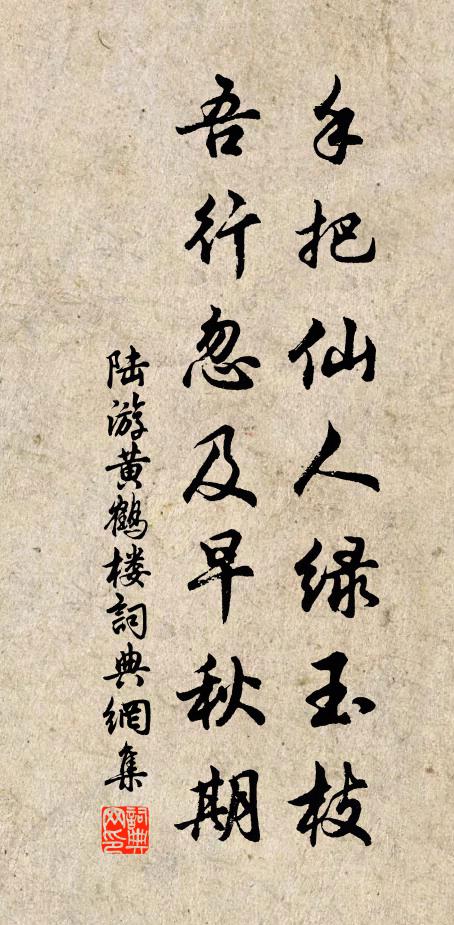 手把仙人绿玉枝
吾行忽及早秋期
陆游黄鹤楼詞典網集
詞典网印